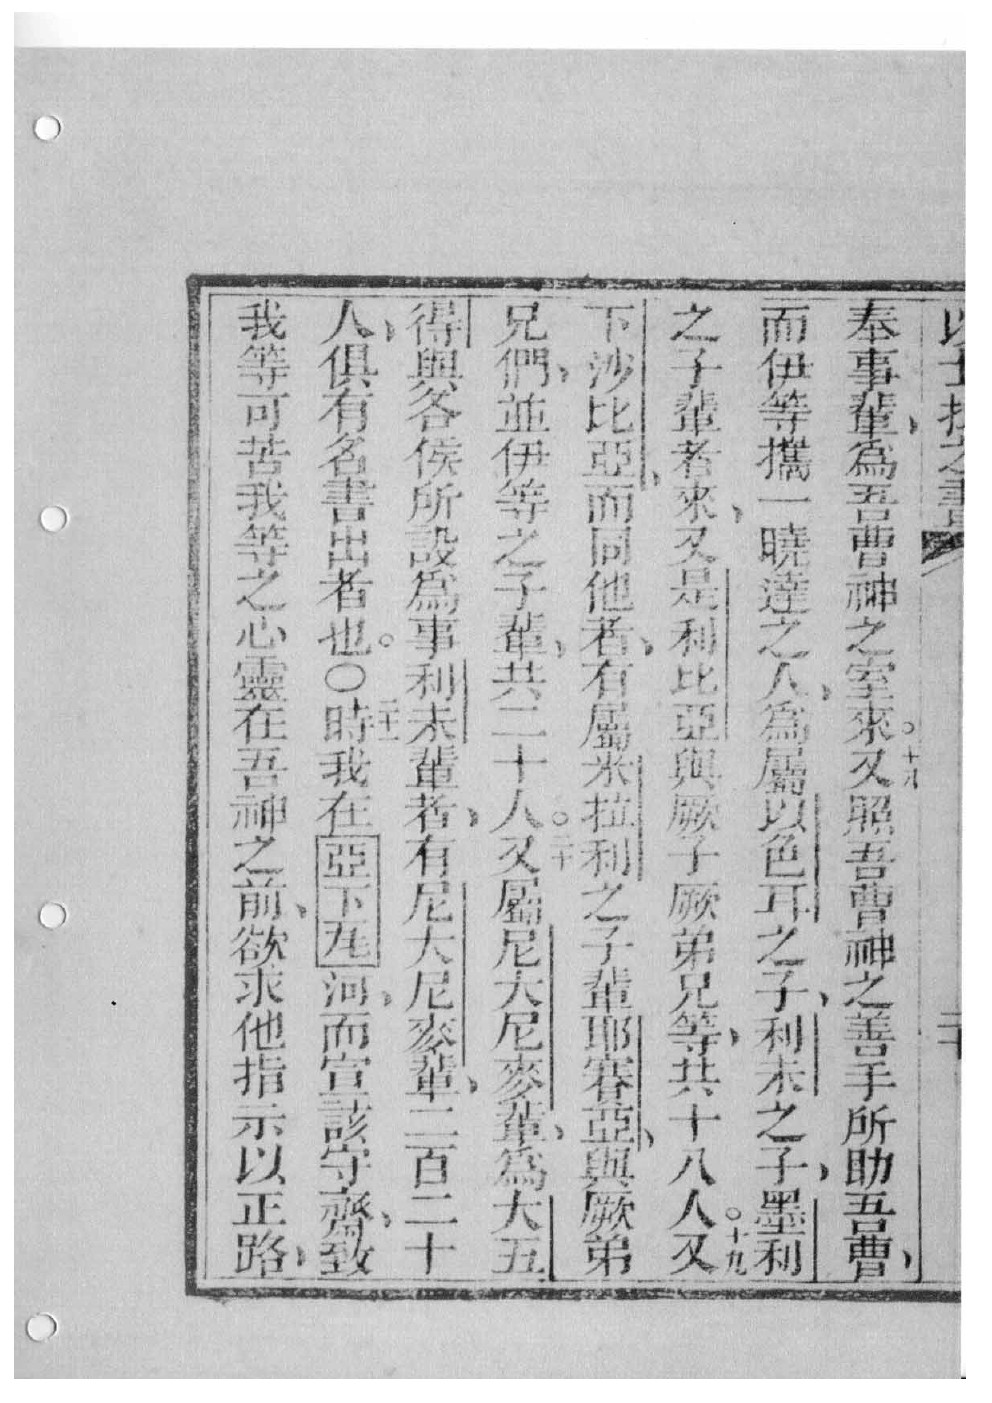 以士拉之書 二十
奉事輩、為吾曹神之室來。十八又照吾曹神之善手所助吾曹、
而伊等攜一曉達之人、為屬以色耳之子、利未之子、墨利
之子輩者來、又是利比亞與厥子厥弟兄等、共十八人。十九又
下沙比亞、而同他者、有屬米拉利之子輩耶賽亞、與厥弟
兄們、並伊等之子輩、共二十人。二十又屬尼大尼麥輩、為大五
得與各侯所設為事利未輩者、有尼大尼麥輩、二百二十
人、俱有名書出者也。○二十一時我在亞下瓦河、而宣該守齋、致
我等可苦我等之心靈在吾神之前、欲求他指示以正路、